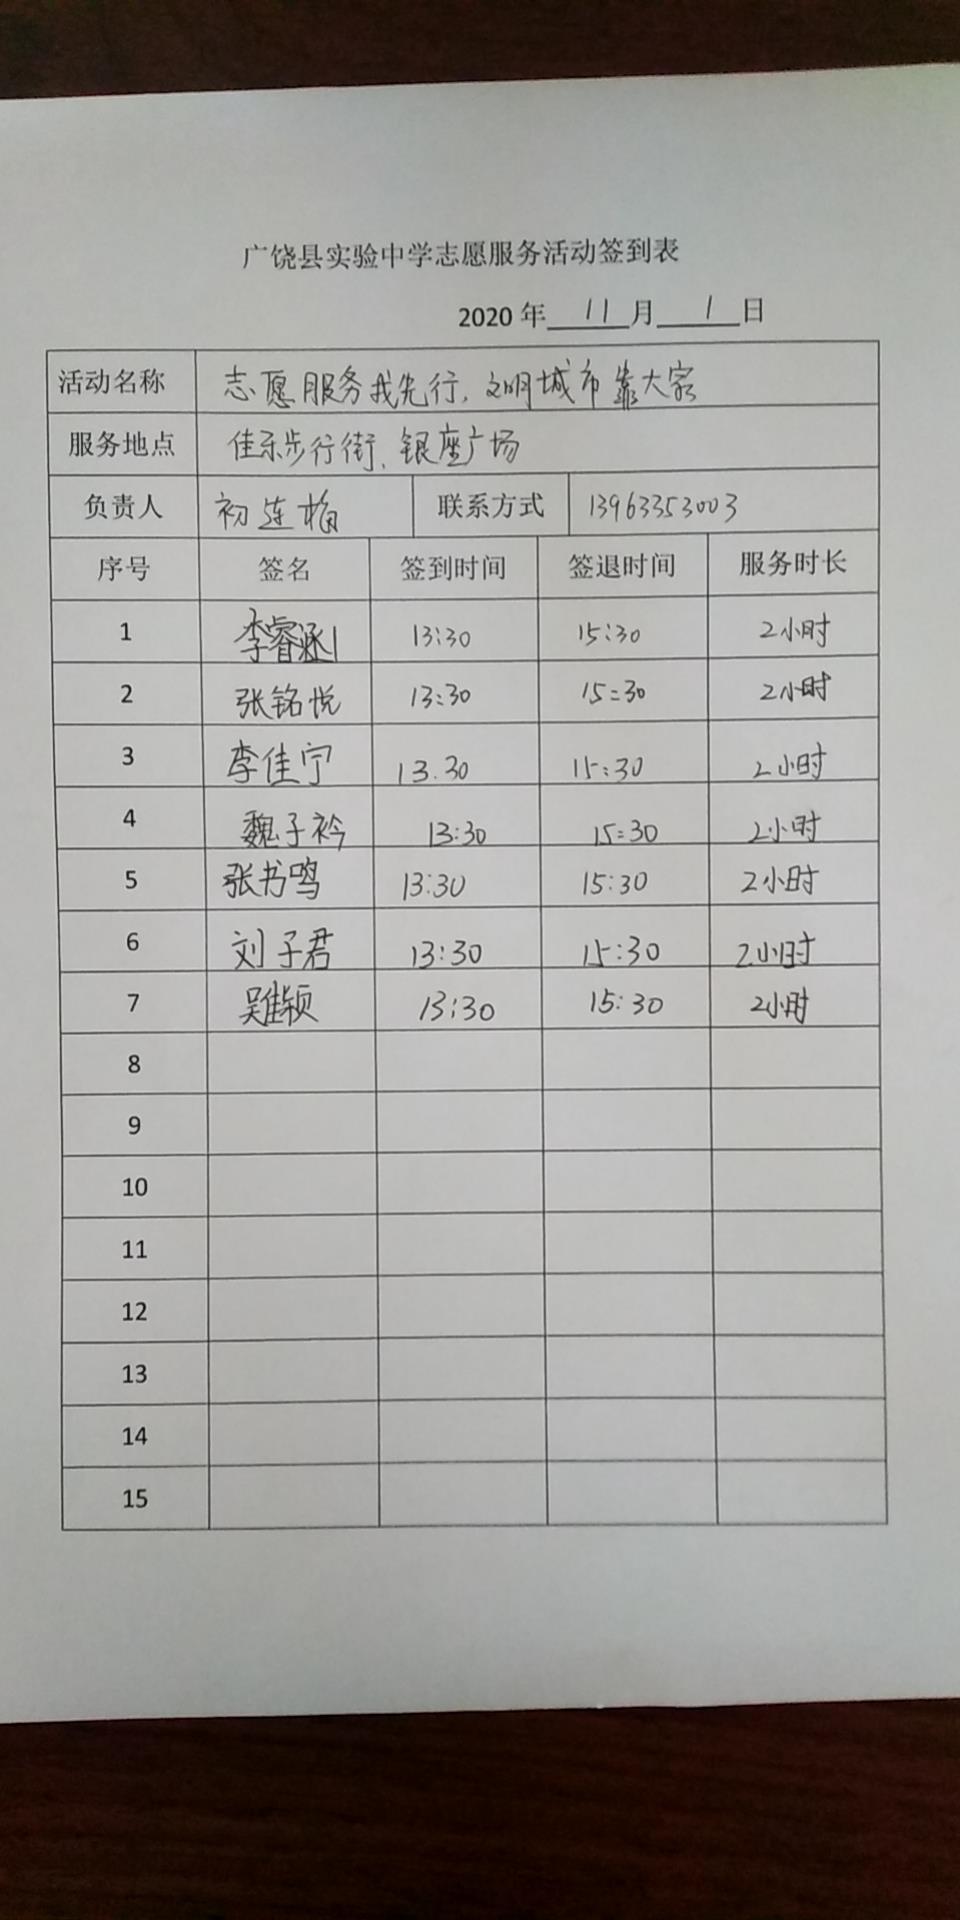 广饶县实验中学志愿服务活动签到表
2020 年 11 月 1 日
活动名称 志愿服务我先行,文明城市靠大家
服务地点 佳乐步行街、银座广场
负责人 初连梅 联系方式 13963353003
序号 签名 签到时间 签退时间 服务时长
1 李睿涵 13:30 15:30 2小时
2 张铭悦 13:30 15:30 2小时
3 李佳宁 13.30 15:30 2小时
4 魏子衿 13:30 15:30 2小时
5 张书鸣 13:30 15:30 2小时
6 刘子君 13:30 15:30 2小时
7 13:30 15:30 2小时
8
9
10
11
12
13
14
15